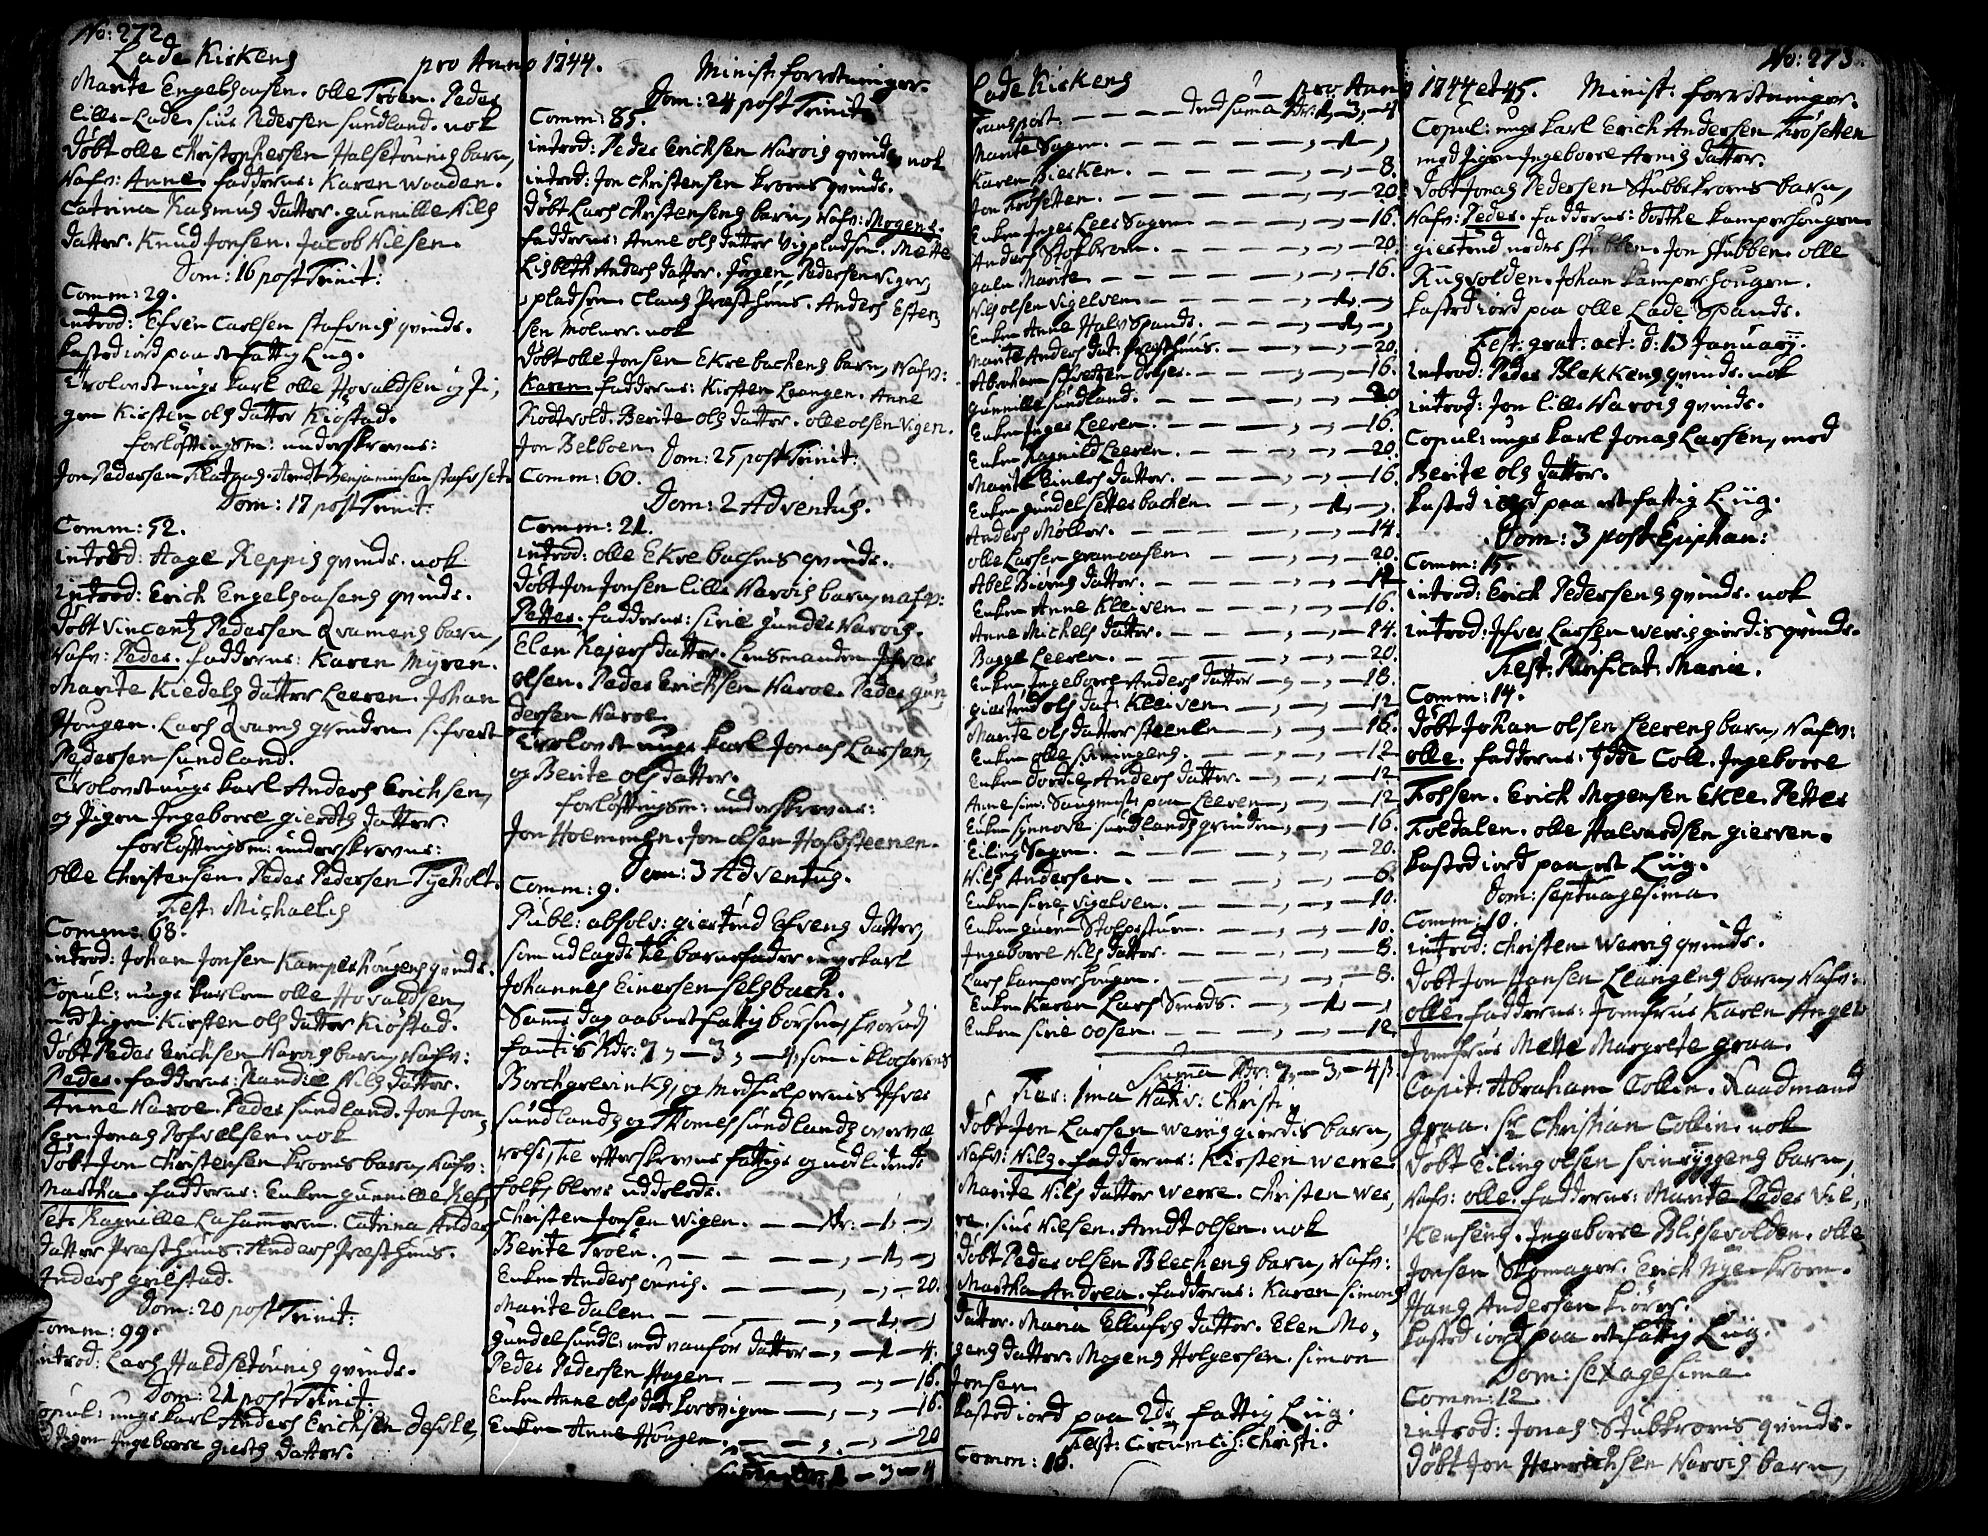 No: 272
Lade Kirkens pro Anno 1744. Minist: forretninger.
Marite Engelsaasen. Olle Troen. Peder
lille-Lade. Sius Pedersen Sundland. nok
Døbt Olle Christophersen Halsetøunis barn,
Nafv: Anne. fadderne: Karen Woaden.
Catrina Rasmus datter. Gunnille Nils
datter. Knud Jonsen. Jacob Nilsen.
Dom: 16 post Trinit:
Comm: 29.
introd: Efven Carlsen Stafnis qvinde.
kasted iord paa et fattig Liig.
Trolovet unge karl Olle Hovaldsen og Pi,
gen Kirsten Ols datter Kiøstad.
forløftingsm: underskrevne:
Jon Pedersen Flatgas. Arndt Benjaminsen
Dom: 17 post Trinit:
Comm: 52.
introd: Aage Reppis qvinde. nok
introd: Erich Engelsaasens qvinde.
Døbt Vincentz Pedersen Qvamens barn,
Nafv: Peder. fadderne: Karen Myren.
Marite Kiedels datter Leeren. Johan
Hougen. Lars Qvams qvinden. Sifvert
Pedersen Sundland.
Trolovet unge karl Anders Erichsen,
og Pigen Ingeborre giertz datter.
forløftingsm: underskrevne:
Olle Christensen. Peder Pedersen Tyeholt.
Fest: Michaelis
Comm: 68.
introd: Johan Jonsen Kamperhougens qvinde.
Copul: unge karlen Olle Hovaldsen,
med Pigen Kirsten Ols datter Kiøstad.
Døbt Peder Erichsen Narois barn, Nafv:
Peder. fadderne: Randie Nils datter.
Anne Naroe. Peder Sundland. Jon Jon,
sen. Jonas Pofvelsen. nok
Døbt Jon Christensen kroens barn, Nafv:
Martha. fadderne: Enken Gunnille Ref,
set. Ragnille Lahammeren. Catrina Anders
datter Præsthuus. Anders Præsthuus.
Anders grilstad.
Dom: 20 post Trinit:
Comm: 99.
introd: Lars Haldsetøunis qvinde.
Dom: 21 post Trinit:
Copul: unge karl Anders Erichsen
Pigen Ingeborre giertz datter.
Dom: 24 post Trinit:
Comm: 85.
introd: Peder Erichsen Narois qvinde, nok
introd: Jon Christensen kroens qvinde.
Døbt Lars Christensens barn, Nafv: Mogens.
fadderne: Anne Ols datter Vigpladsen. Mette
Lisbeth Anders datter. Jørgen Pedersen Viger,
pladsen. Claus Præsthuus. Anders Esten,
sen Mølner. nok
Døbt Olle Jonsen Ekrebackens barn, Nafv:
Karen. fadderne: Kirsten Leangen. Anne
Rodtvold. Berite Ols datter. Olle Olsen Vigen.
Jon Belboen. Dom: 25 post Trinit:
Comm: 60.
Dom: 2 Adventus.
Comm: 21.
introd: Olle Ekrebachens qvinde.
Døbt Jon Jonsen lille Narois barn, Nafv:
Petter. fadderne: Sirie Gunder Narois.
Elen Rejers datter. Lensmanden Ifver
Olsen. Peder Erichsen Naroe. Peder Gun
dersen Naroe.
Trolovet unge karl Jonas Larsen,
og Berite Ols datter.
forløftingsm: underskrevne:
Jon Holemmen. Jon Olsen Hofdsteenen.
Dom: 3 Adventus.
Comm: 9.
Publ: absolv: giertrud Efvens datter,
som udlagde til barnefader unge karl
Johannes Einersen Selsbach.
Samme dag aabnet fattig børsen, hvorudj
fantis Rdr: 7, — 3, — 4, som i klockerens
Borchgrevinks, og Medhielpernis Ifver
Sundlands og Thomes Sundlands overvæ
relse, til efterskrevne fattige og nødlidende
folk, blev uddeelede.
Christen Jonsen Wigen. — — Rdr: — 1, —,
Berite Troen. — — — — 1, —,
Enken Anders øunis. — — — — 20.
Marite dalen — — — — 1, —,
Gundel Sundl: med vanfør datter — , — 1 — 4.
Peder Pedersen Hagen — — — — 16.
Enken Anne Ols dat: korsvigen — , — , — 16.
Enken Anne Hougen. — , — , — 20
Summa Rdr: 1 — 3 — 4
No: 273.
Lade Kirkens pro Anno 1744 et 45. Minist: forretninger.
Transport. — — — dend Suma Rdr: 1, 3, — 4
Marite Sagen. — — — — , — 1 — ,
Karen Biersken. — — — , — , — 8.
Jon Frøsetten. — — — , — , — 20.
Enken Inger Leer Sagen — — , — , — 16.
Anders Stokbroen. — — , — , — 20
galn Marite — — — , — , — 16.
Nils Olsen Vigelven. — — , — 1, — ,
Enken Anne Halv Spands. — — 1, — ,
Marite Anders dat: Præsthuus. — , — , — 20.
Abraham — , — , — 16.
Gunnille Sundland. — — , — , — 20
Enken Inger Leeren. — — , — , — 16.
Enken Ragnild Leeren. — — , — , — 20.
Marite Einers datter. — — , — , — 16.
Enken Gundel Settersbacken — — 1, —,
Anders Møller. — — — , — , — 14.
Olle Larsen granaasen. — — , — , — 20.
Abel Biørns datter. — — , — , — 12
Enken Anne Kleiven — — , — , — 16.
Anne Michels datter. — — , — , — 14.
Bugge Leeren. — — — , — , — 20.
Enken Ingeborre Anders datter — , — , — 18.
giertrud Ols dat: Kleiven — , — , — 12
Marite Ols datter Steenen — , — , — 16.
Enken Olle Svinryggens — — , — , — 12
Enken Dordie Anders datter. — , — , — 12
Anne sim: Saugmest: paa Leeren — , — , — 12
Enken Synnove Sundlands qvinden, — , — 16.
Eiling Sagen. — — — , — , — 20.
Nils Andersen. — — — , — , — 6.
Enken Sirie Vigelven. — — , — , — 10.
Enken Guren Stolpestuen. — , — , — 10.
Ingeborre Nils datter. — — , — , — 8.
Lars kamperhougen. — — , — , — 8.
Enken Karen Lars Smeds. — , — 1, — ,
Enken Sirie Oosen. — — , — , — 12
Summa Rdr: 7, — 3, — 4 ß.
Fer: 1ma Nativ: Christi
Døbt Jon Larsen weregierdis barn,
Nafv: Nils. fadderne: Kirsten werre
Marite Nils datter werre. Christen wer,
re. Sius Nilsen. Arndt Olsen. nok
Døbt Peder Olsen Bleckens barn, Nafv:
Martha Andrea. fadderne: Karen Simons
datter. Maria Ellufs datter. Elen Mo,
gens datter. Mogens Holgersen. Simon
Jonsen
kasted iord paa 2de fattig Liig.
Fest: Circumcis: Christi.
Comm: 10.
Copul: unge karl Erich Andersen Frøsetten
med Pigen Ingeborre Arnis datter.
Døbt Jonas Pedersen Stubbekroens barn,
Nafv: Peder. fadderne: Dorthe kamperhougen
giertrud neder Stubben. Jon Stubben. Olle
Rugvolden. Johan kamperhougen.
kasted iord paa Olle Lade Spands.
Fest: grat: act: d: 13 January.
introd: Peder Blekkens qvinde. nok
introd: Jon lille Narois qvinde.
Copul: unge karl Jonas Larsen, med
Berite Ols datter.
kasted iord paa et fattig Liig.
Dom: 3 post Epiphan:
Comm: 15.
introd: Erich Pedersens qvinde. nok
introd: Ifver Larsen weregierdis qvinde.
Fest: Purificat: Mariæ.
Comm: 14.
Døbt Johan Olsen Leerens barn, Nafv:
Olle. fadderne: Ydde Coll. Ingeborre
Fossen. Erich Mogensen Ekle. Petter
Foldalen. Olle Halvardsen gierven.
kasted iord paa et Liig.
Dom: Septuagesima
Comm: 10.
introd: Christen Werris qvinde.
Døbt Jon Hansen Leangens barn, Nafv:
Olle. fadderne: Jomfrue Karen Angel
Jomfrue Mette Margrete graa.
Capit: Abraham Collin. Raadmand
graa. Sr Christian Collin. nok
Døbt Eiling Olsen Svinryggens barn,
Nafv: Olle. fadderne: Marite Peder Vel,
kensens. Ingeborre Blissevolden. Olle
Jonsen Skomager. Erich Nye kroen.
Hans Andersen kiører.
kasted iord paa et fattig Liig.
Dom: Sexagesima
Comm: 12
introd: Jonas Stubkroens qvinde.
Døbt Jon Henrichsen Narois barn,